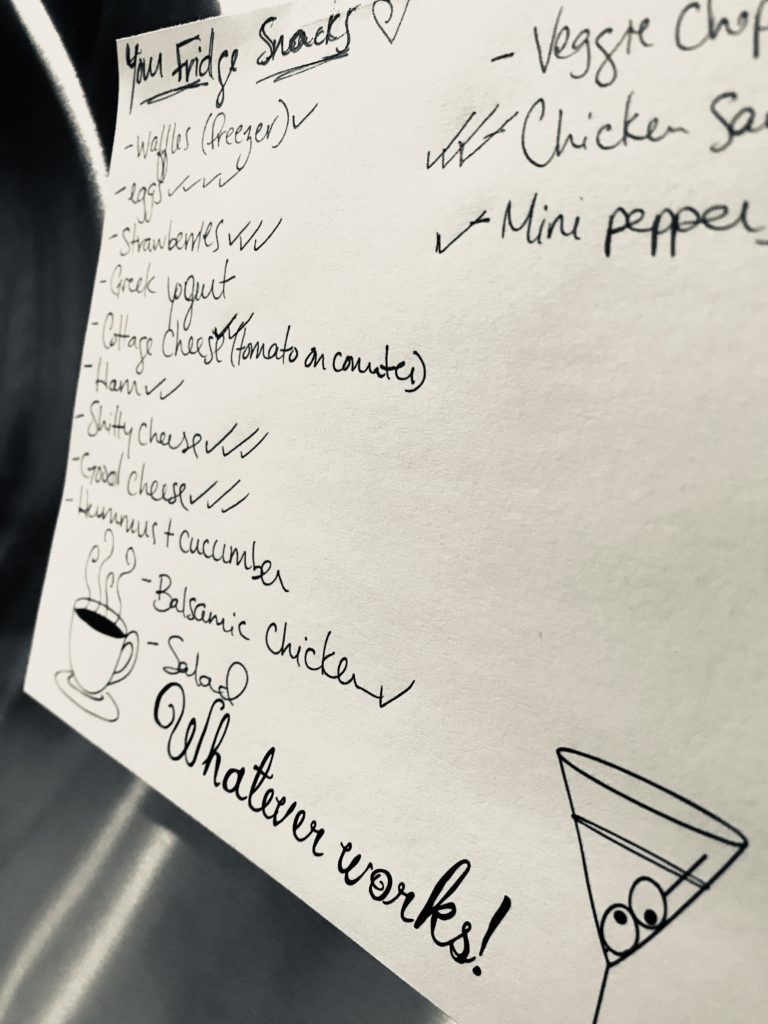 Your Fridge Snacks ♡
- Waffles (freezer) ✓
- eggs ✓✓✓✓
- Strawberries ✓✓✓
- Greek yogurt
- Cottage cheese ✓✓ (tomato on counter)
- Ham ✓✓
- Shitty cheese ✓✓✓
- Good cheese ✓✓✓
- Hummus + cucumber
- Balsamic Chicken ✓
- Salad
Whatever works!
- Veggie Chop
✓✓✓ - Chicken Sa
✓ - Mini peppers